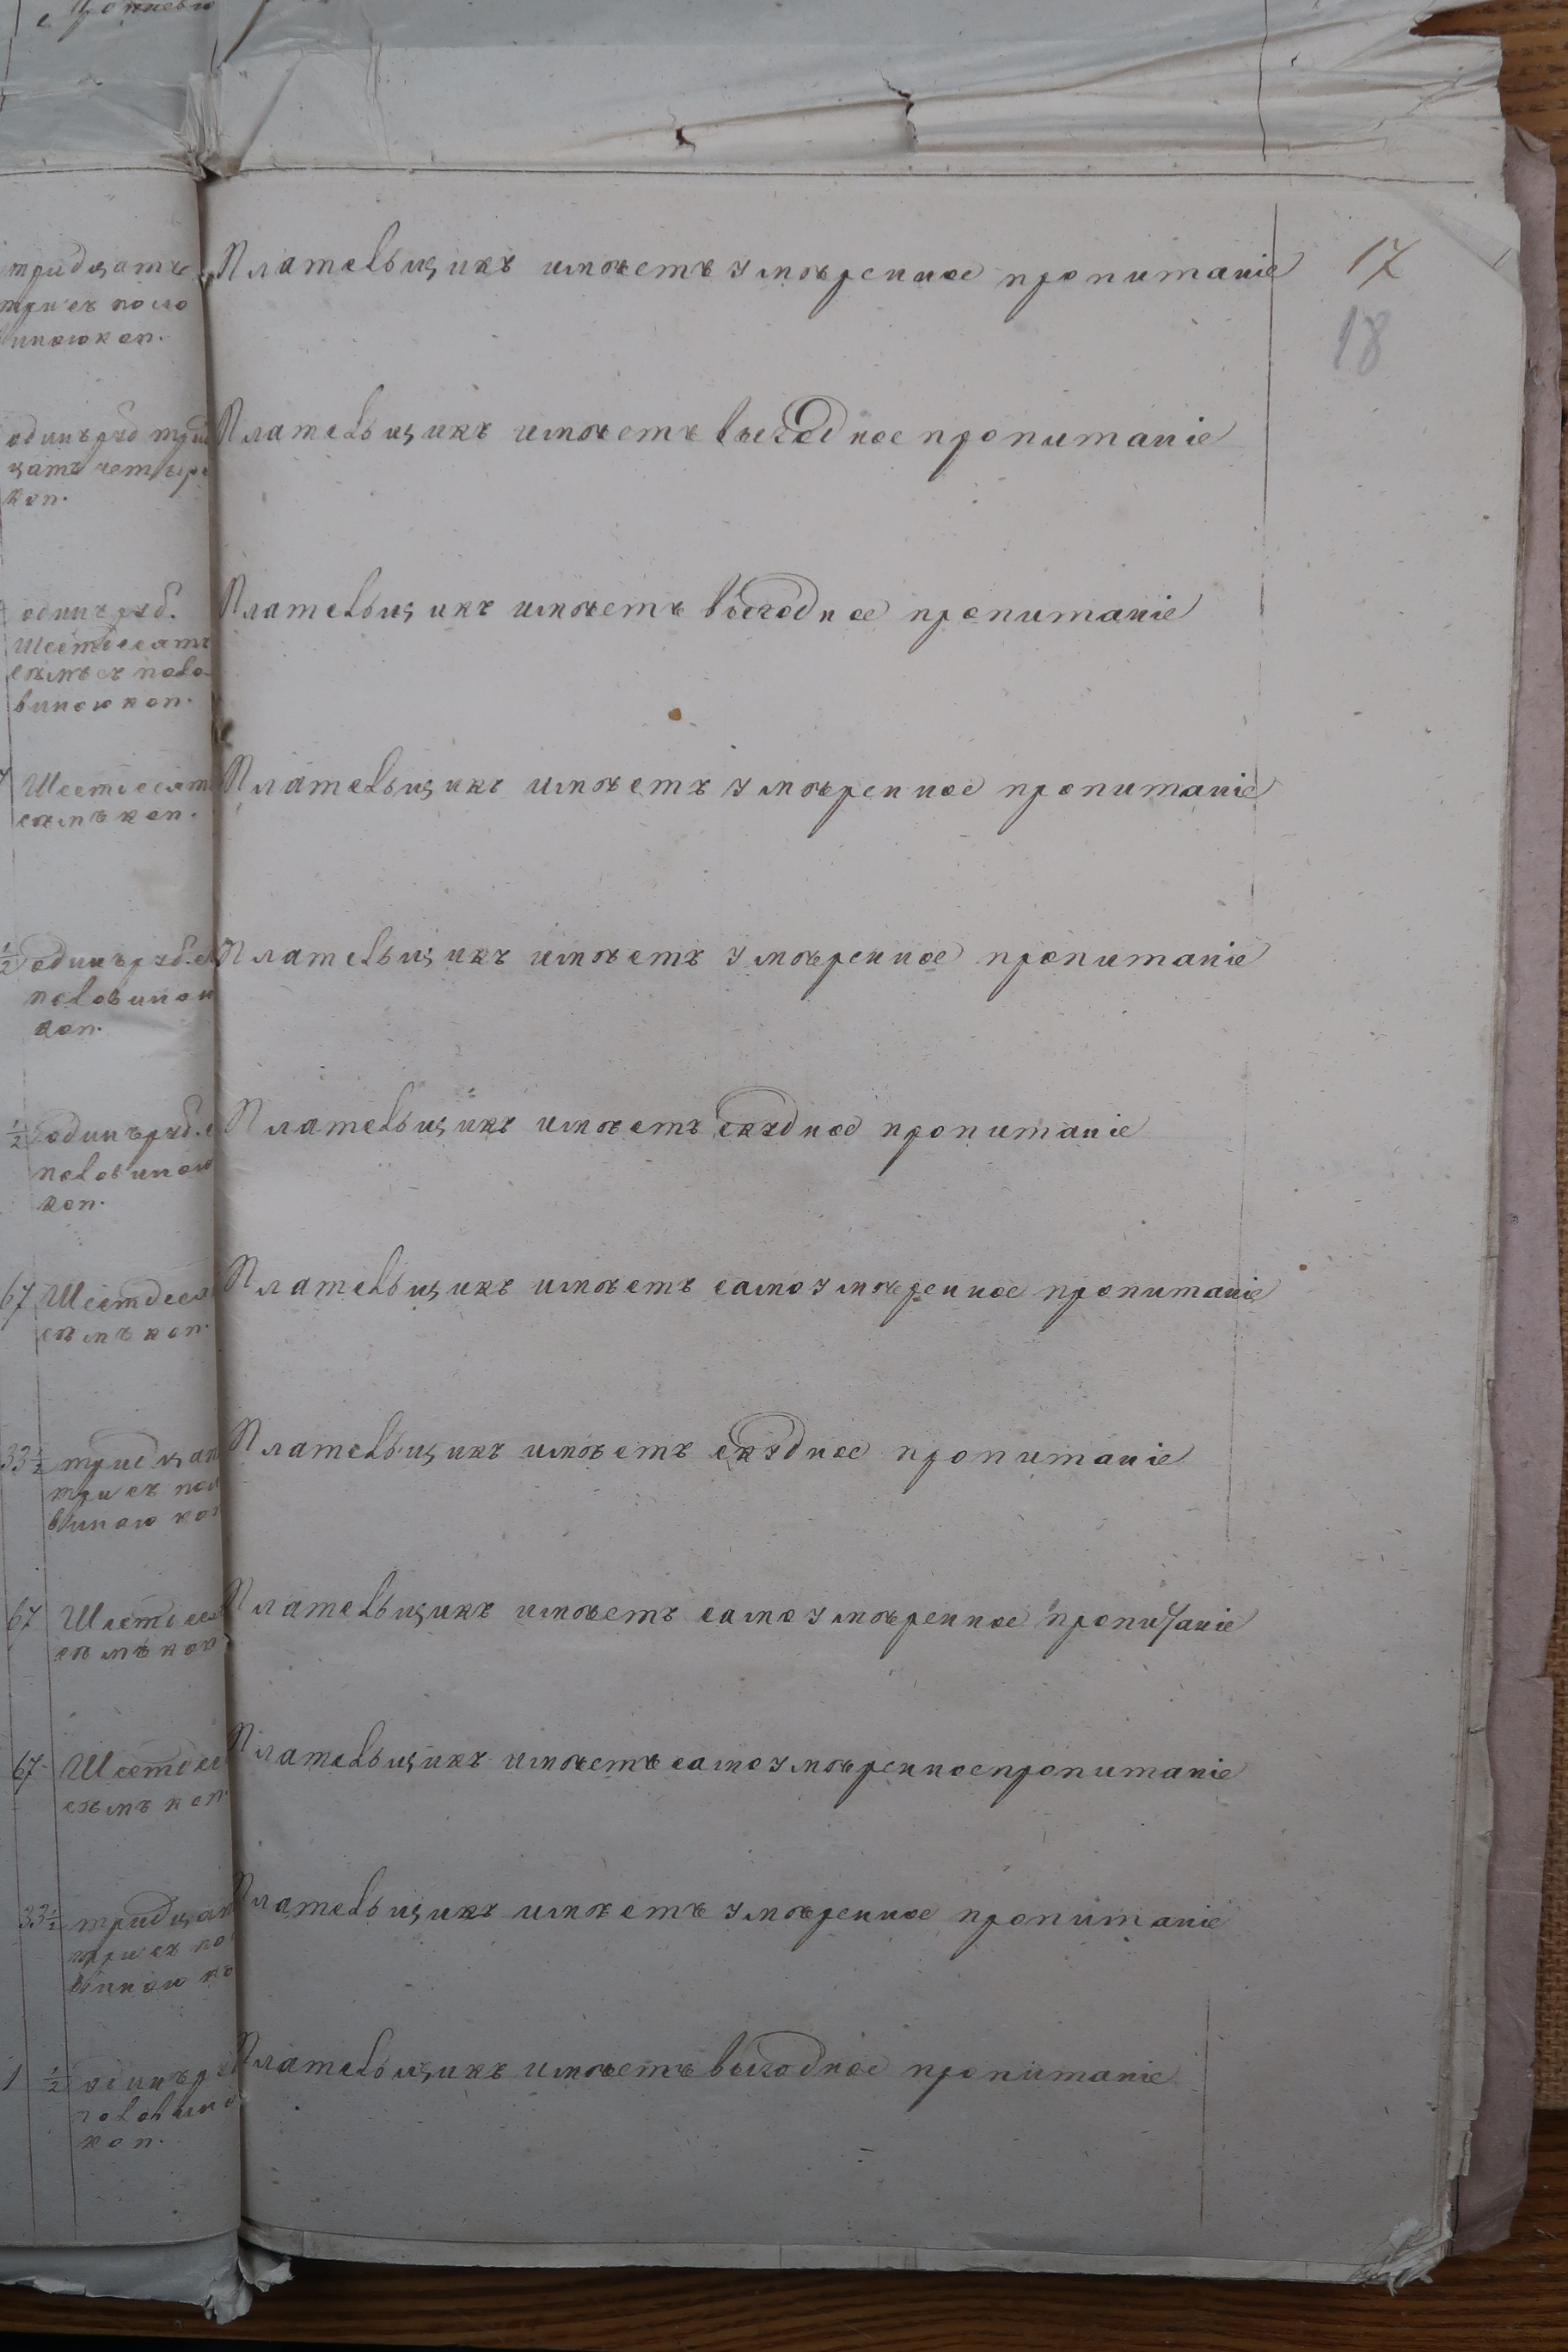 тридцать
три съ поло
виною коп.
Плательщикъ имѣетъ умѣренное пропитаніе
17
18
одинъ руб трид
цать четыре
коп.
Плательщикъ имѣетъ выгодное пропитаніе
одинъ руб.
Шестдесятъ
сѣмъ съ поло-
виною коп.
Плательщикъ имѣетъ выгодное пропитаніе
Шестдесят
сѣмъ коп.
Плательщикъ имѣетъ умѣренное пропитаніе
1/2 одинъ руб. съ
половиною
коп.
Плательщикъ имѣетъ умѣренное пропитаніе
1/2 одинъ руб. с
половиною
коп.
Плательщикъ имѣетъ скудное пропитаніе
67 Шестдеся
сѣмъ коп.
Плательщикъ имѣетъ самоумѣренное пропитаніе
33 1/2 тридцат
три съ пол
виною коп
Плательщикъ имѣетъ скудное пропитаніе
67 Шестдеся
сѣмъ коп
Плательщикъ имѣетъ самоумѣренное пропитаніе
67 Шестдес
сѣмъ коп
Плательщикъ имѣетъ самоумѣренное пропитаніе
33 1/2 тридцат
три съ по
виною ко
Плательщикъ имѣетъ умѣренное пропитаніе
1 1/2 одинъ ру
половино
коп.
Плательщикъ имѣетъ выгодное пропитаніе